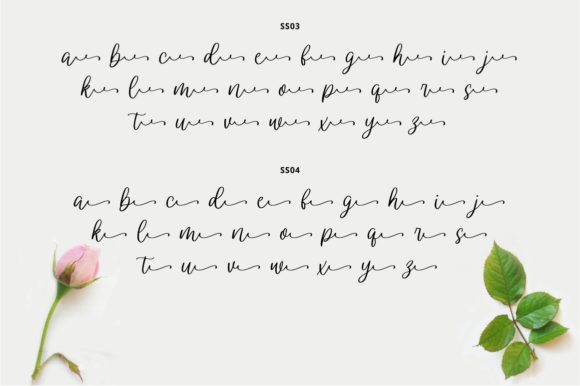 SS03
a b c d e f g h i j
k l m n o p q r s
t u v w x y z
SS04
a b c d e f g h i j
k l m n o p q r s
t u v w x y z